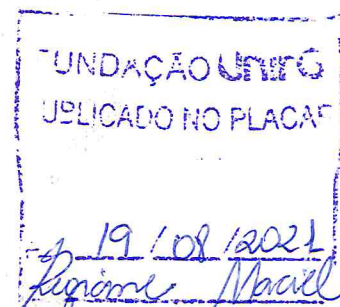 FUNDAÇÃO UnirG
PUBLICADO NO PLACAR
19 / 08 / 2021
Maciel